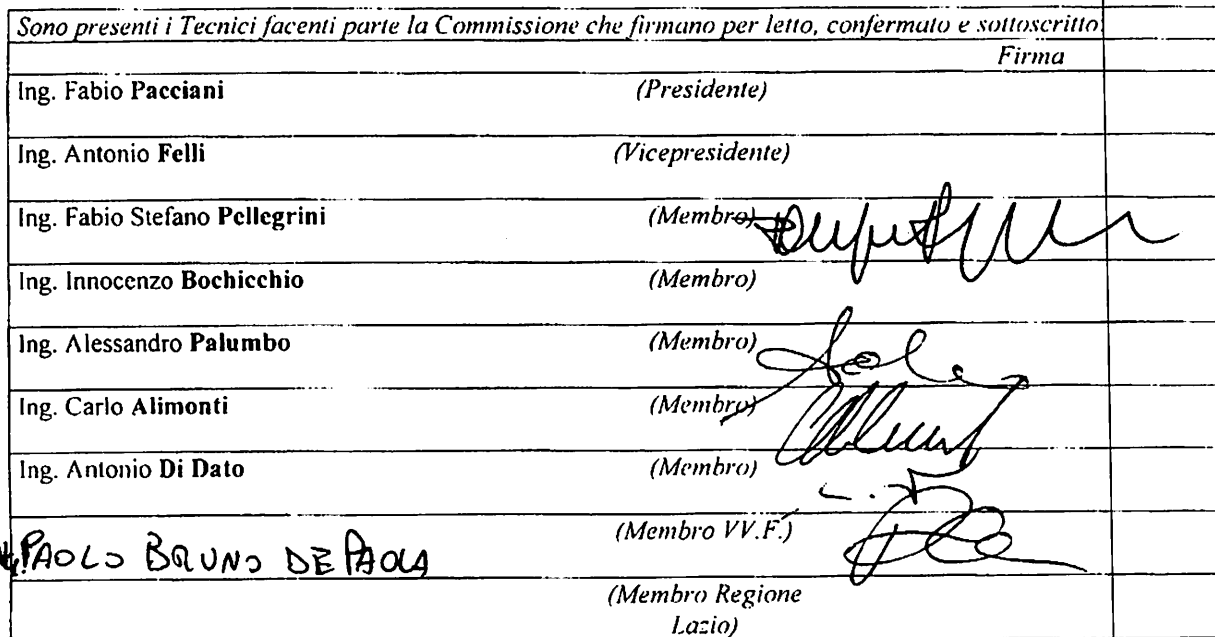 Sono presenti i Tecnici facenti parte la Commissione che firmano per letto, confermato e sottoscritto
Firma
Ing. Fabio Pacciani (Presidente)
Ing. Antonio Felli (Vicepresidente)
Ing. Fabio Stefano Pellegrini (Membro)
Ing. Innocenzo Bochicchio (Membro)
Ing. Alessandro Palumbo (Membro)
Ing. Carlo Alimonti (Membro)
Ing. Antonio Di Dato (Membro)
(Membro VV.F.)
PAOLO BRUNO DE PAOLA
(Membro Regione
Lazio)